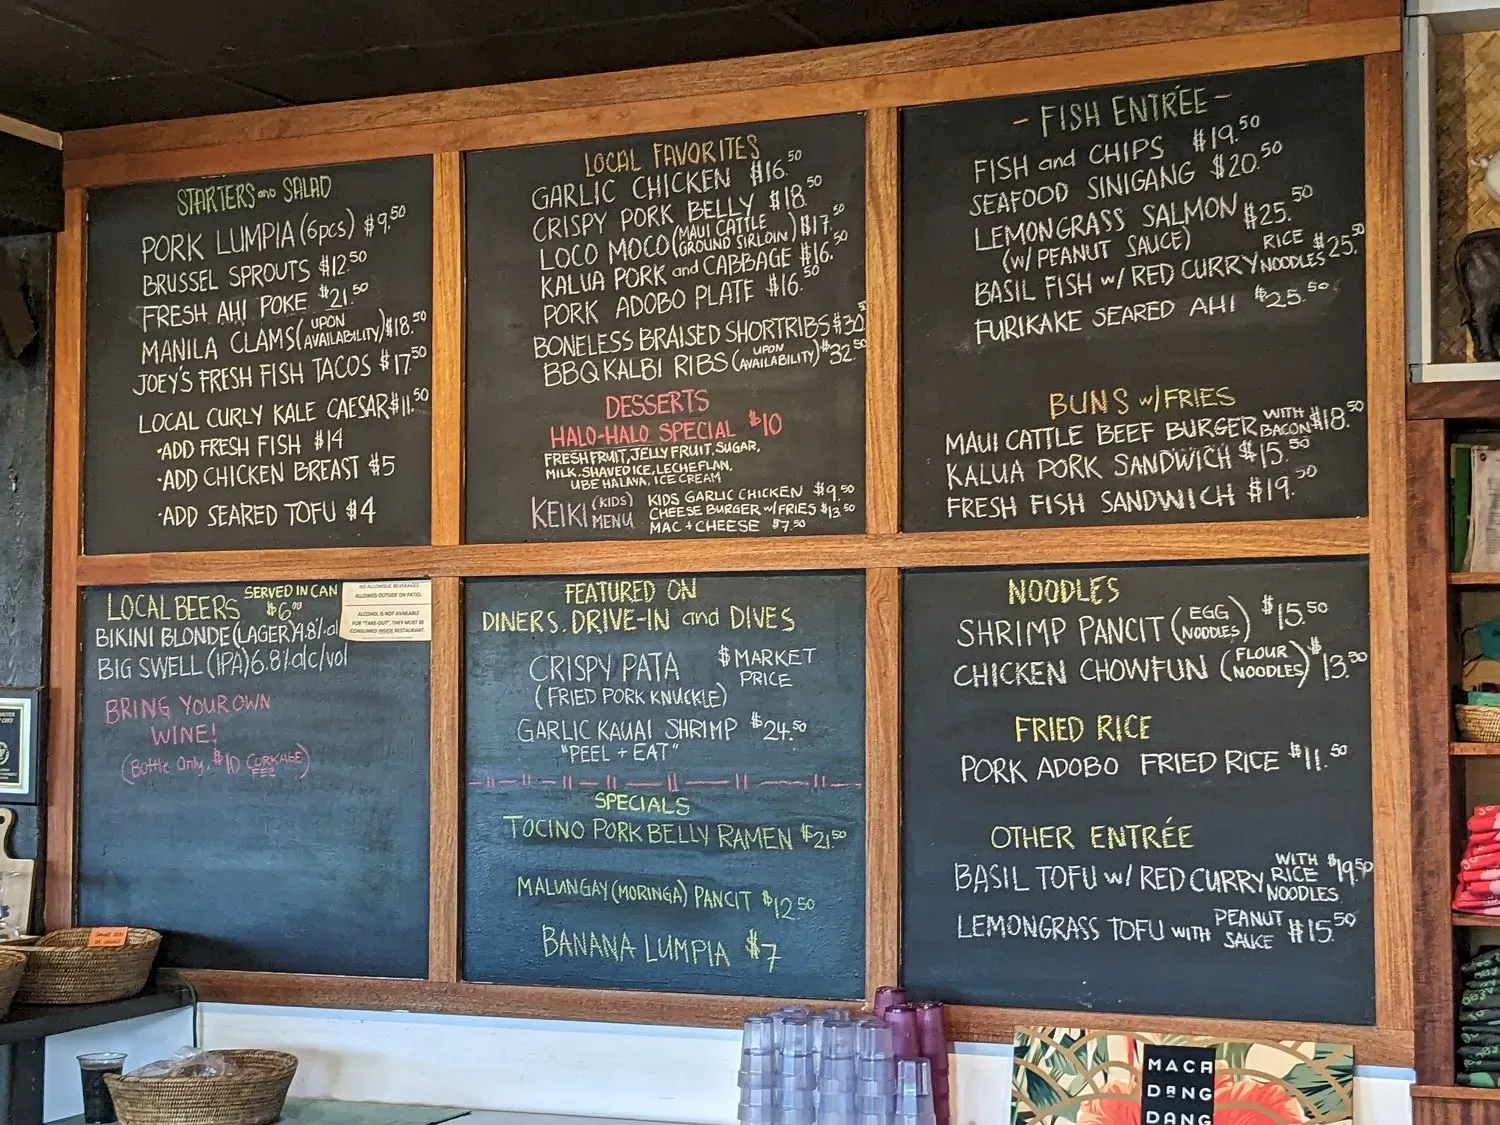 STARTERS and SALAD
PORK LUMPIA (6pcs) $9.50
BRUSSEL SPROUTS $12.50
FRESH AHI POKE $21.50
MANILA CLAMS (UPON AVAILABILITY) $18.50
JOEY'S FRESH FISH TACOS $17.50
LOCAL CURLY KALE CAESAR $11.50
•ADD FRESH FISH $14
•ADD CHICKEN BREAST $5
•ADD SEARED TOFU $4
LOCAL FAVORITES
GARLIC CHICKEN $16.50
CRISPY PORK BELLY $18.50
LOCO MOCO (MAUI CATTLE GROUND SIRLOIN) $17.50
KALUA PORK and CABBAGE $16.50
PORK ADOBO PLATE $16.50
BONELESS BRAISED SHORTRIBS $30
BBQ KALBI RIBS (UPON AVAILABILITY) $32.50
DESSERTS
HALO-HALO SPECIAL $10
FRESH FRUIT, JELLY FRUIT, SUGAR,
MILK, SHAVED ICE, LECHE FLAN,
UBE HALAYA, ICE CREAM
KEIKI (KIDS) MENU
KIDS GARLIC CHICKEN $9.50
CHEESE BURGER w/FRIES $13.50
MAC + CHEESE $7.50
- FISH ENTRÉE -
FISH and CHIPS $19.50
SEAFOOD SINIGANG $20.50
LEMONGRASS SALMON $25.50
(W/ PEANUT SAUCE)
BASIL FISH w/ RED CURRY RICE NOODLES $25.50
FURIKAKE SEARED AHI $25.50
BUNS w/FRIES
MAUI CATTLE BEEF BURGER WITH BACON $18.50
KALUA PORK SANDWICH $15.50
FRESH FISH SANDWICH $19.50
LOCAL BEERS SERVED IN CAN $6.00
BIKINI BLONDE (LAGER) 4.8% al
BIG SWELL (IPA) 6.8% alc/vol
BRING YOUR OWN
WINE!
(Bottle Only, $10 CORKAGE FEE)
NO ALCOHOLIC BEVERAGES
ALLOWED OUTSIDE ON PATIO.
ALCOHOL IS NOT AVAILABLE
FOR "TAKE-OUT", THEY MUST BE
CONSUMED INSIDE RESTAURANT.
FEATURED ON
DINERS, DRIVE-IN and DIVES
CRISPY PATA $MARKET PRICE
(FRIED PORK KNUCKLE)
GARLIC KAUAI SHRIMP $24.50
"PEEL + EAT"
SPECIALS
TOCINO PORK BELLY RAMEN $21.50
MALUNGAY (MORINGA) PANCIT $12.50
BANANA LUMPIA $7
NOODLES
SHRIMP PANCIT (EGG NOODLES) $15.50
CHICKEN CHOWFUN (FLOUR NOODLES) $13.50
FRIED RICE
PORK ADOBO FRIED RICE $11.50
OTHER ENTRÉE
BASIL TOFU w/ RED CURRY WITH RICE NOODLES $19.50
LEMONGRASS TOFU WITH PEANUT SAUCE $15.50
MACA
DANG
DANG